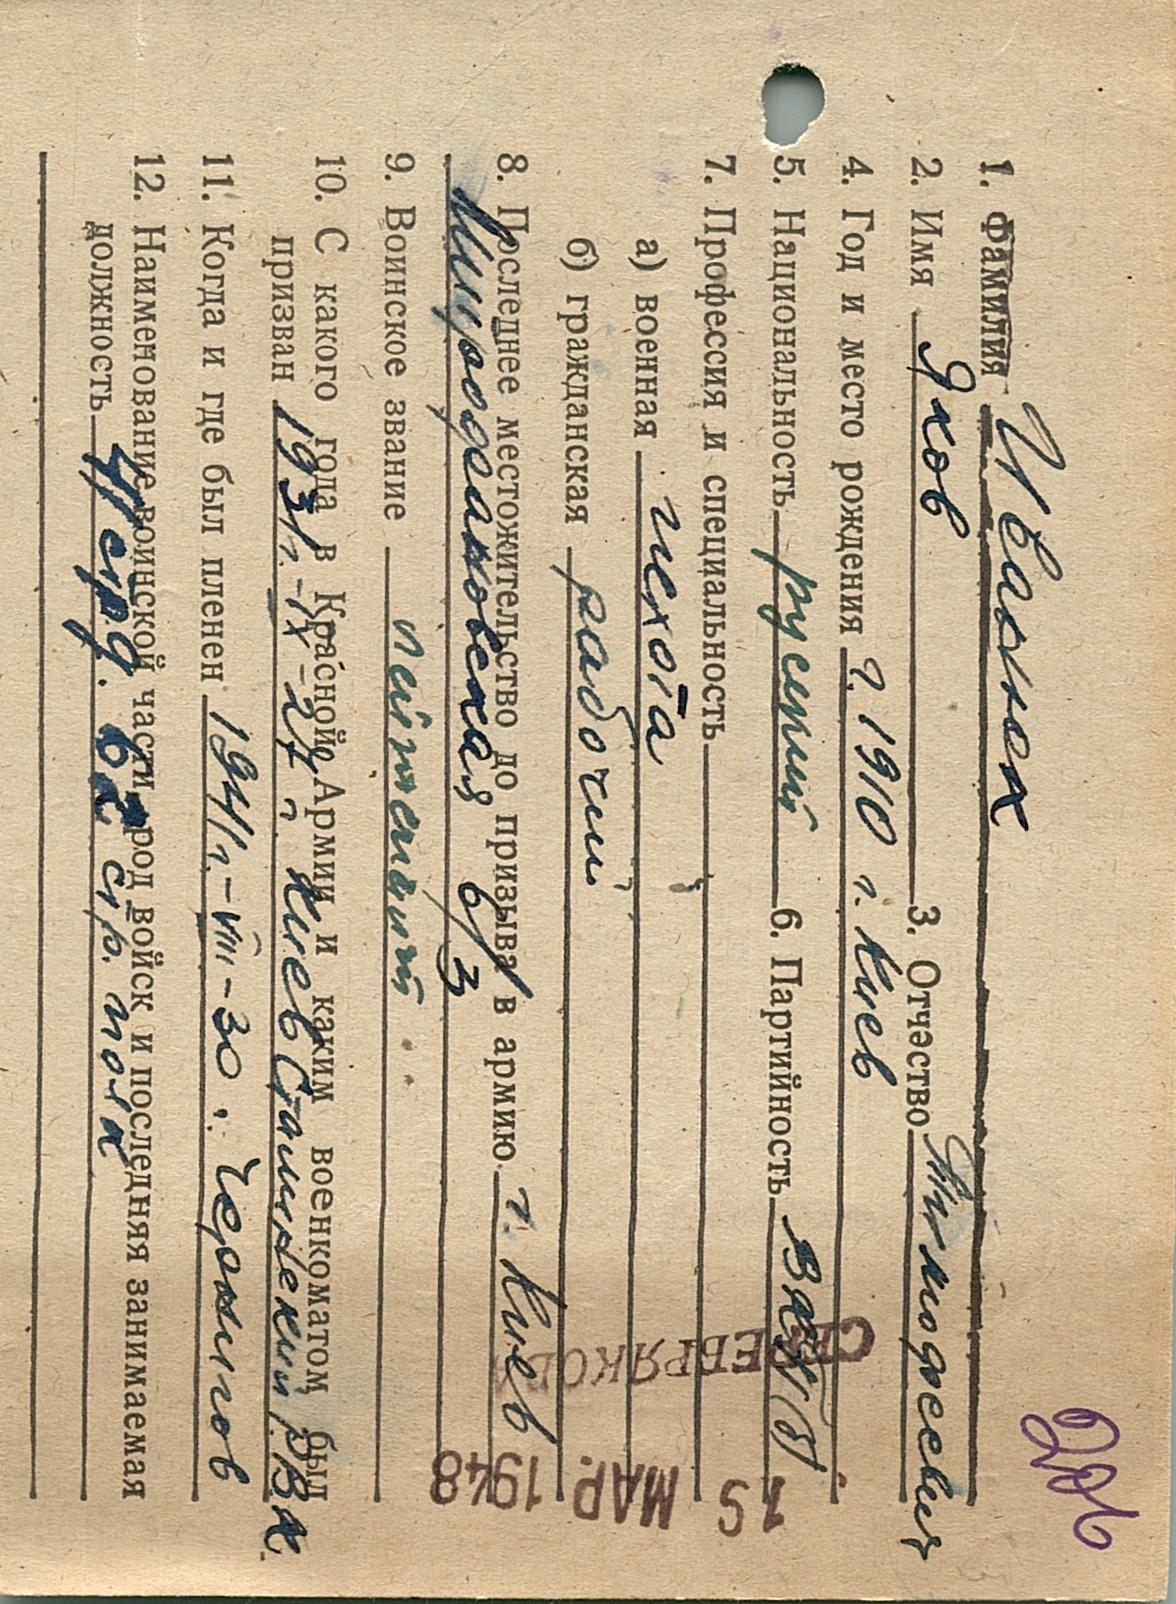 1. Фамилия Иванюк
2. Имя Яков 3. Отчество Тимофеевич
4. Год и место рождения г. 1910 г. Киев
5. Национальность русский 6. Партийность ВКП(б)
7. Профессия и специальность
а) военная пехота
б) гражданская рабочий
8. Последнее местожительство до призыва в армию г. Киев
9. Воинское звание лейтенант
10. С какого года в Красной Армии и каким военкоматом был
призван 1931 г. - IX - 27 г. Киев Сталинский РВК.
11. Когда и где был пленен 1941 г. - VIII - 30 г. Чернигов
12. Наименование воинской части, род войск и последняя занимаемая
должность 62 стр. полк
СЕРЕБРЯКОВА
15 МАР. 1948